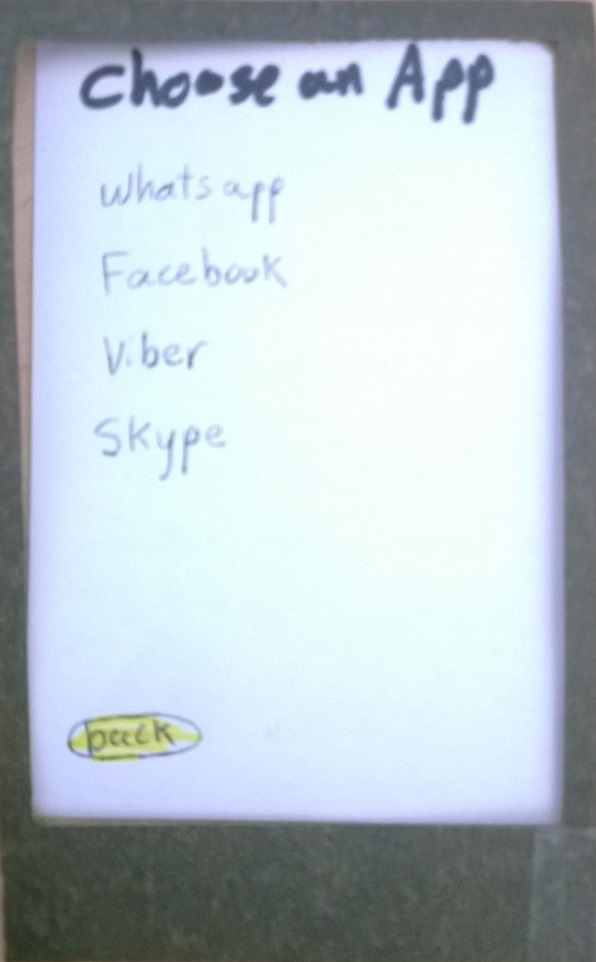 Choose an App
Whatsapp
Facebook
Viber
Skype
back